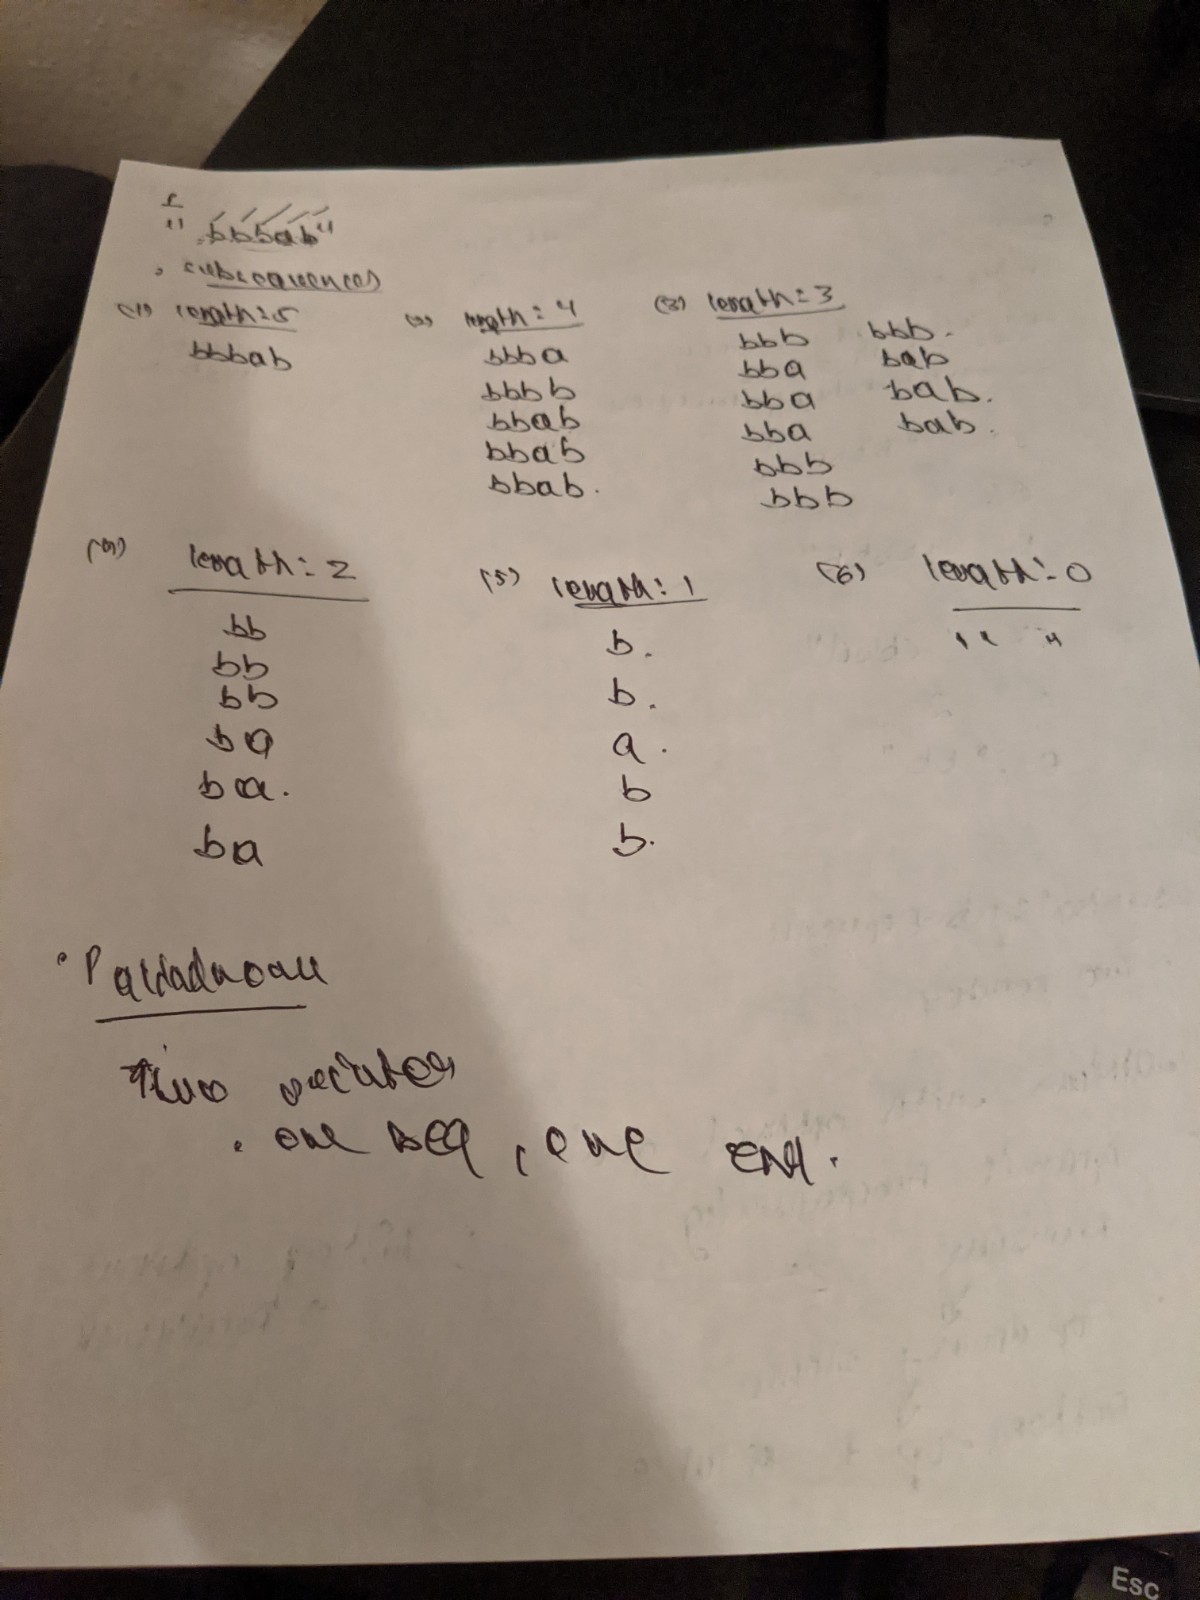 "bbbab"
subsequences
(1) length:5
bbbab
(2) length: 4
bbba
bbbb
bbab
bbab
bbab.
(3) length: 3
bbb bbb.
bba bab
bba bab.
bba bab.
bbb
bbb
(4) length: 2
bb
bb
bb
ba
ba.
ba
(5) length: 1
b.
b.
a.
b
b.
(6) length: 0
" "
Two
. one beg, one end.
Esc